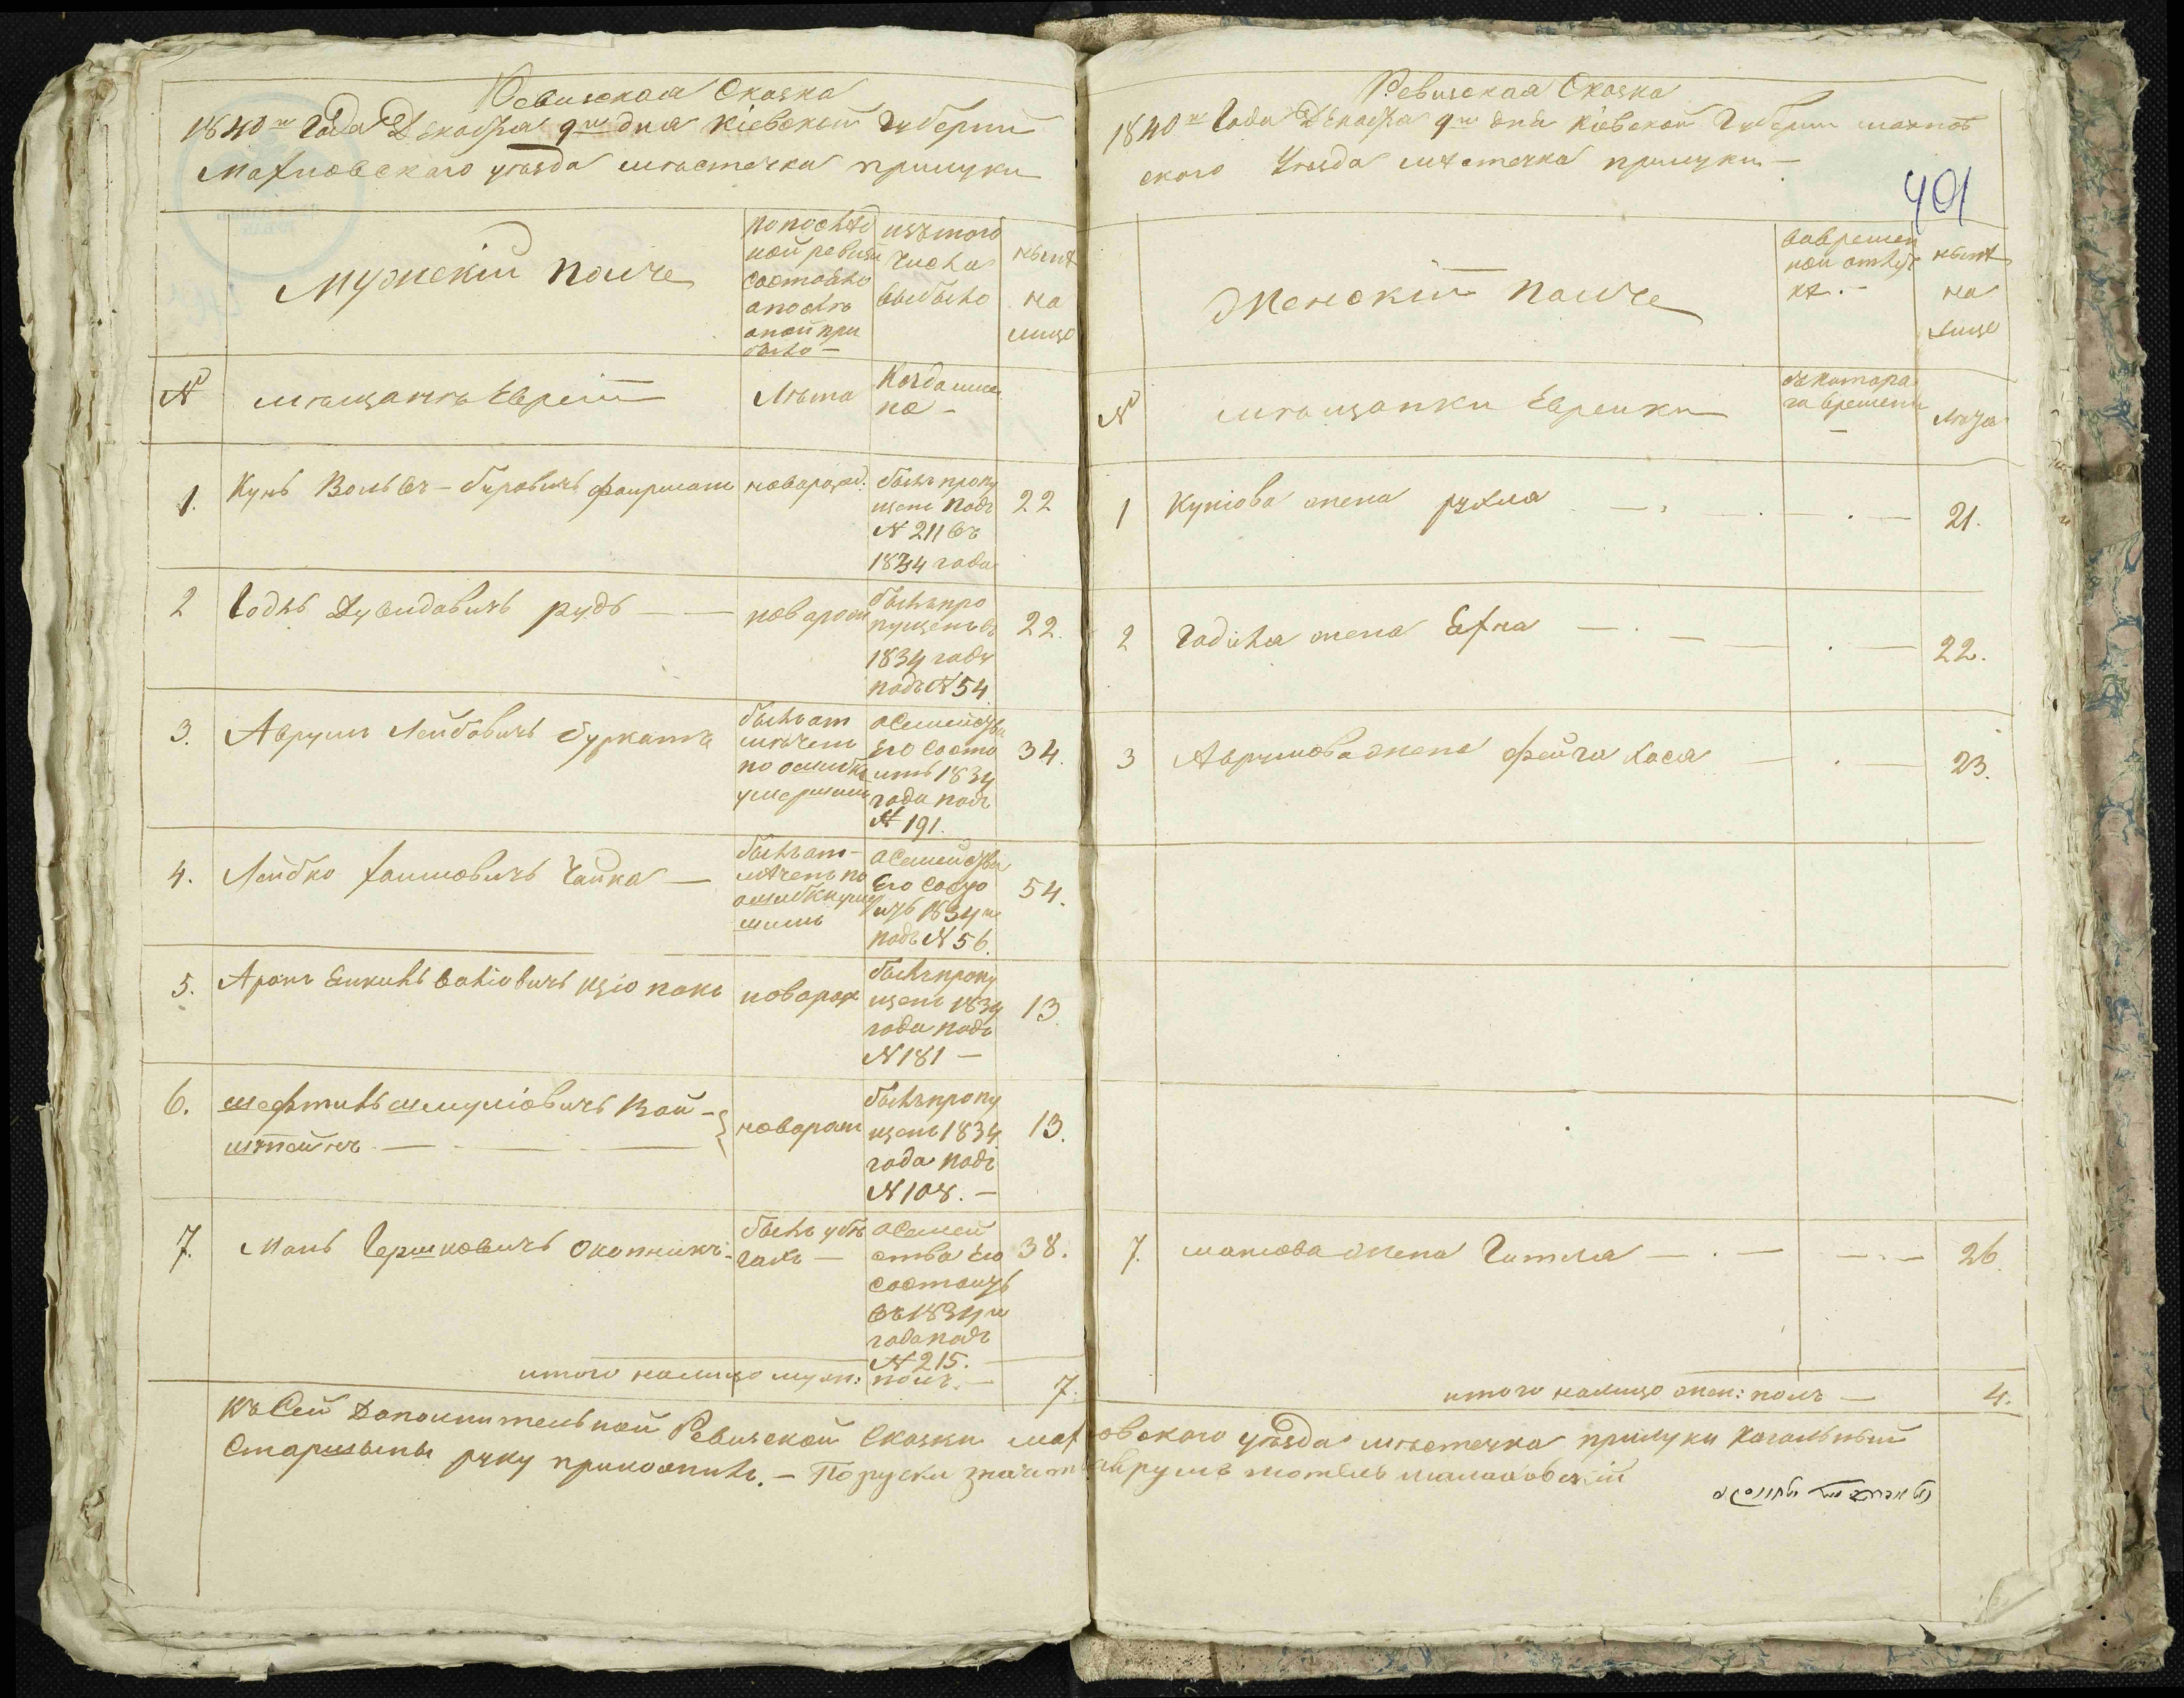 Ревизская Сказка
1840го Года Декабря 9го дня Кіевской Губерніи
Махновского уѣзда мѣстечка прилуки
Мужскій полъ
По послѣд
ней ревизіи
состояло
а послѣ
оной при
было —
изъ того
числа
выбыло
нынѣ
на
лицо
№
мѣщанъ Евреи
Лѣта
Когда име
но –
1.
Кунь Вольвъ – Беровичь Фаирман
новорожд:
былъ пропу
щенъ подъ
№ 211 въ
1834 года
22
2
Годль Дувидовичь Рудь — —
новорож
былъ про
пущенъ въ
1834 году
подъ № 54
22.
3.
Аврумъ Лейбовичь Буркатъ
былъ от
мѣченъ
по ошибке
умершимъ
а семейства
его состо
итъ 1834
года подъ
№ 191.
34.
4.
Лейбко Хаимовичь Чайка —
былъ от–
мѣченъ по
ошибки умер
шимъ
а семейства
Его состо
итъ 1834го
подъ № 56.
54.
5.
Аронъ
новорож
былъ пропу
щенъ 1834
года подъ
№ 181 —
13
6.
шефтиль шмуліовичь Вай–
штейнъ — — —
новорож
былъ пропу
щенъ 1834
года подъ
№ 108. —
13.
7.
Мань Гершковичь Окопникъ.
былъ убѣ
галъ —
а семей
ства его
состоитъ
въ 1834го
года подъ
№ 215.
38.
итого налицо муж: полъ. — 7.
Ревизская Сказка
1840го Года Декабря 9го дня Кіевской Губерніи махнов
ского Уѣзда мѣстечка прилуки —
401
Женскій полъ
во времен
ной отлуч
кѣ. –
нынѣ
на
лицо
№
мѣщанки Еврейки
съ котора
го времени
—
лѣта
1 Куніова жена рухля — . — . — . — 21.
2 Годиля жена Ехна — . — — . — 22.
3 Аврумова жена Фейга Хася — . — 23.
7. манова жена Гитля — . — — . — 26.
итого налицо жен: полъ — 4.
Къ Сей Дополнительной Ревизской Сказки Махновского уѣзда мѣстечка прилуки Кагальный
Старшыны руку приложилъ. — По руски значитъ Аврумъ